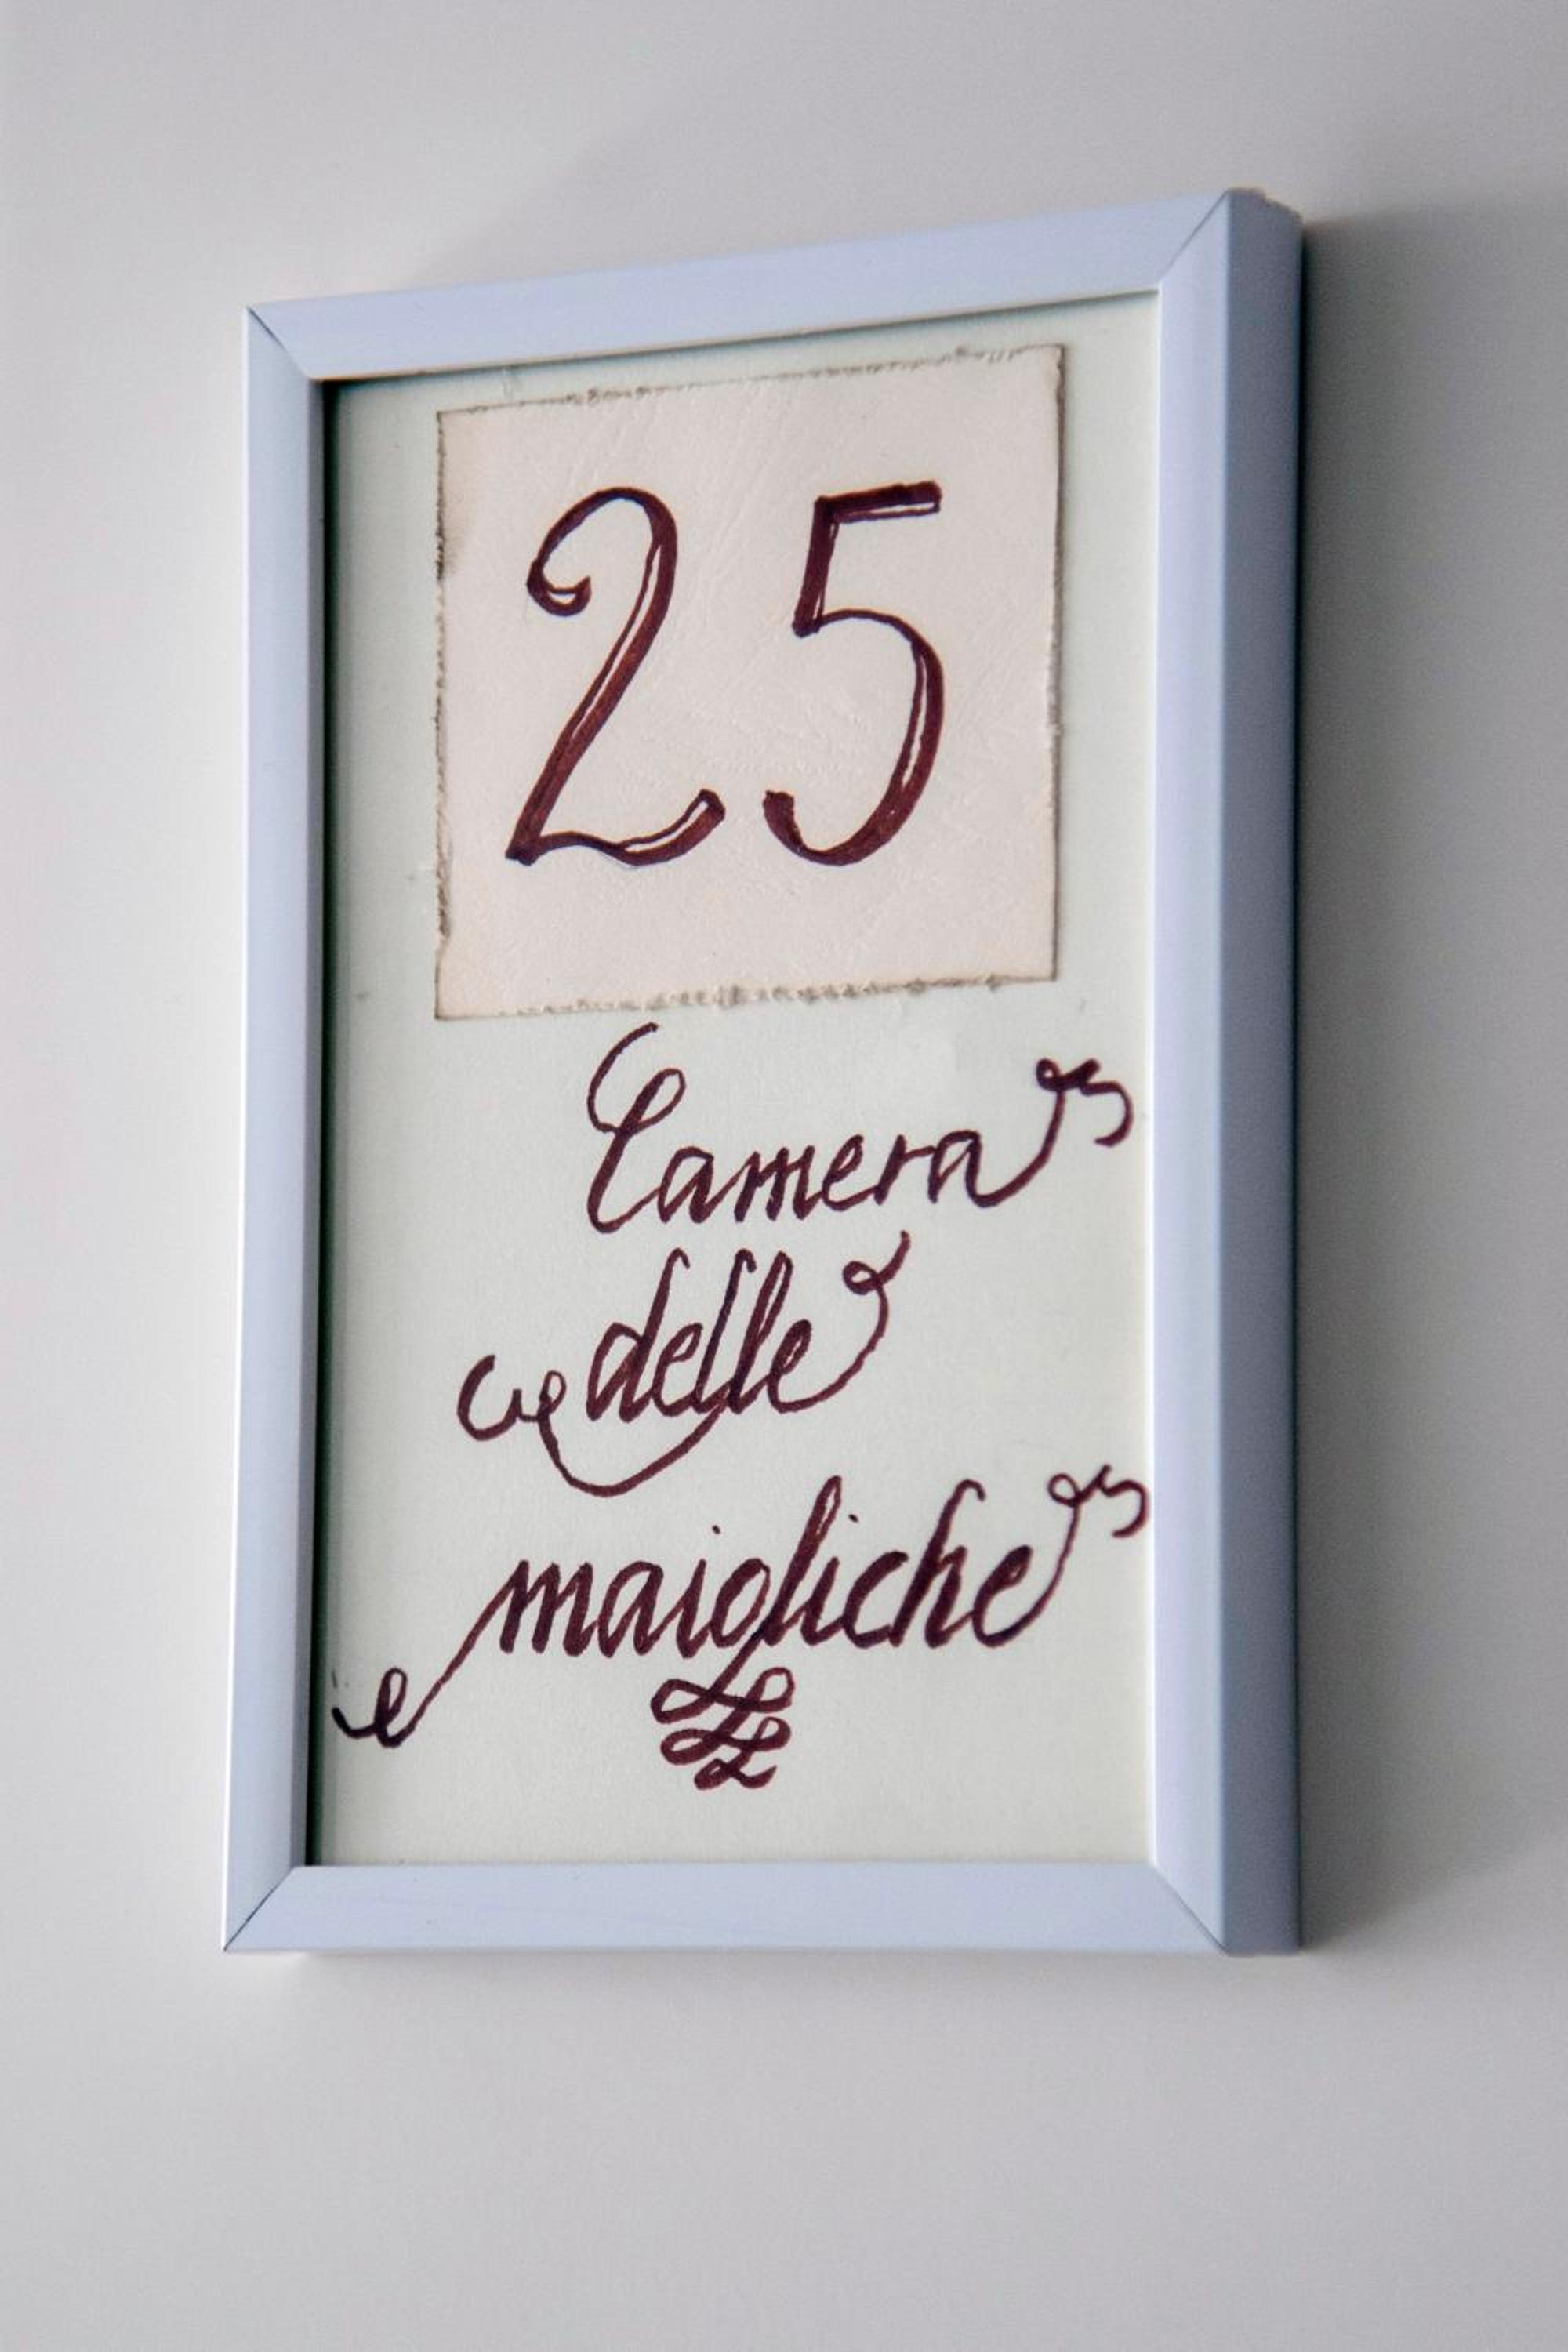 25
Camera
delle
maioliche